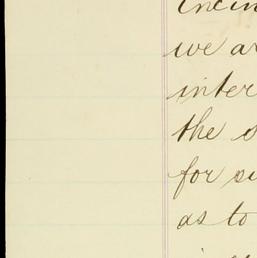 we a
inter
the s
for su
as to